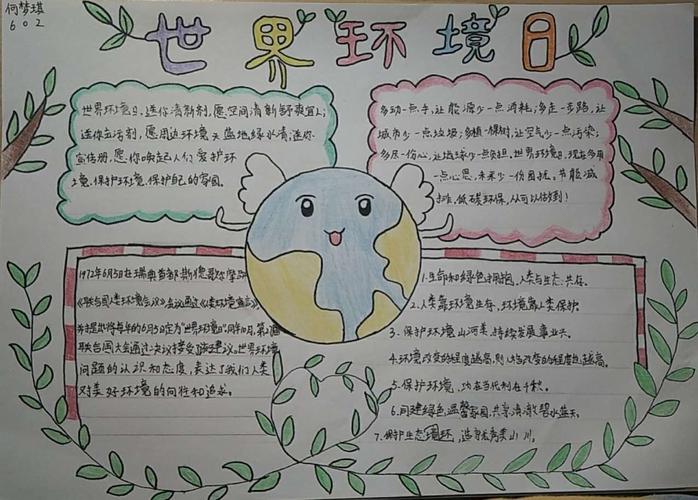 何梦琪
602
世界环境日
世界环境日,送你清新剂,愿空间清新舒爽宜人;
送你立活剂,愿周边环境天蓝地绿水清;送你
宣传册,愿你唤起人们爱护环
境,保护环境,保护自己的家园。
多动一点手,让能源少一点消耗;多走一步路,让
城市少一点垃圾;多植一棵树,让空气少一点污染;
多尽一份心,让地球少一点负担,世界环境日,现在多用
一点心思,未来少一份困扰。节能减
排,低碳环保,从可以做到!
1972年6月5日在瑞典首都斯德哥尔摩
《联合国人类环境会议》会议通过《人类环境宣言》,
并提出将每年的6月5日定为"世界环境日".同年10月,第27届
联合国大会通过决议接受该建议。世界环境
问题的认识和态度,表达了我们人类
对美好环境的向往和追求。
1.生命和绿色拥抱,人类与生态共存.
2.人类靠环境生存,环境靠人类保护.
3.保护环境山河美,持续发展事业兴.
4.环境改变的程度越高,则人均改变的程度也越高.
5.保护环境,功在当代利在千秋.
6.同建绿色温馨家园,共享清澈碧水蓝天.
7.保护生态环环,造方优秀美山川.